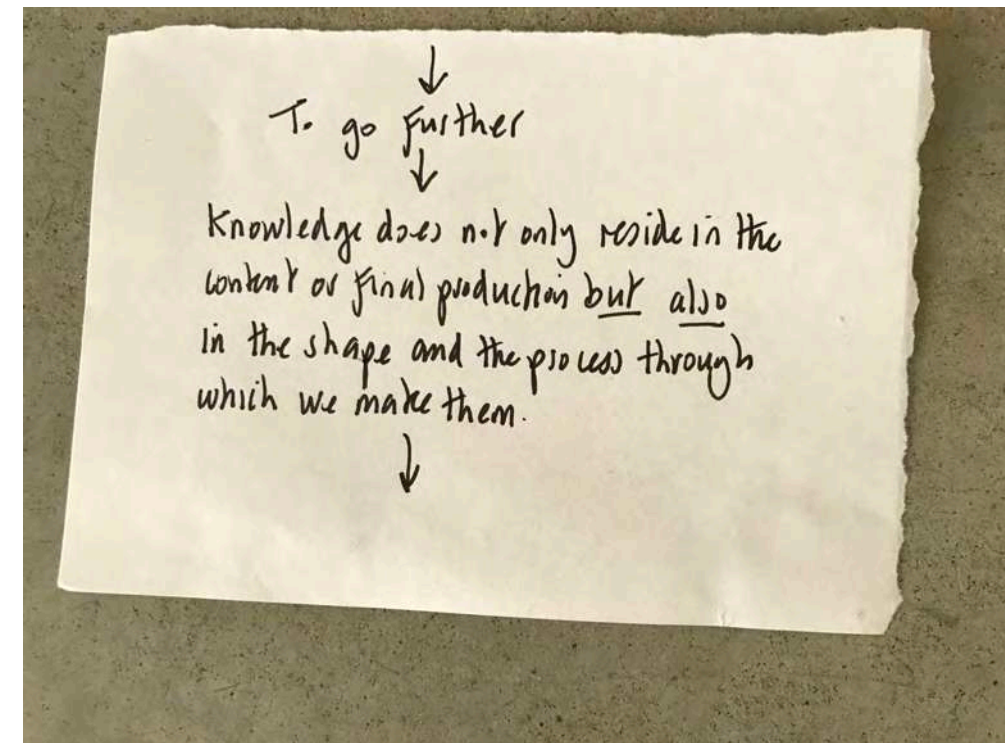 ↓
To go further
↓
Knowledge does not only reside in the
content or final production but also
in the shape and the process through
which we make them.
↓